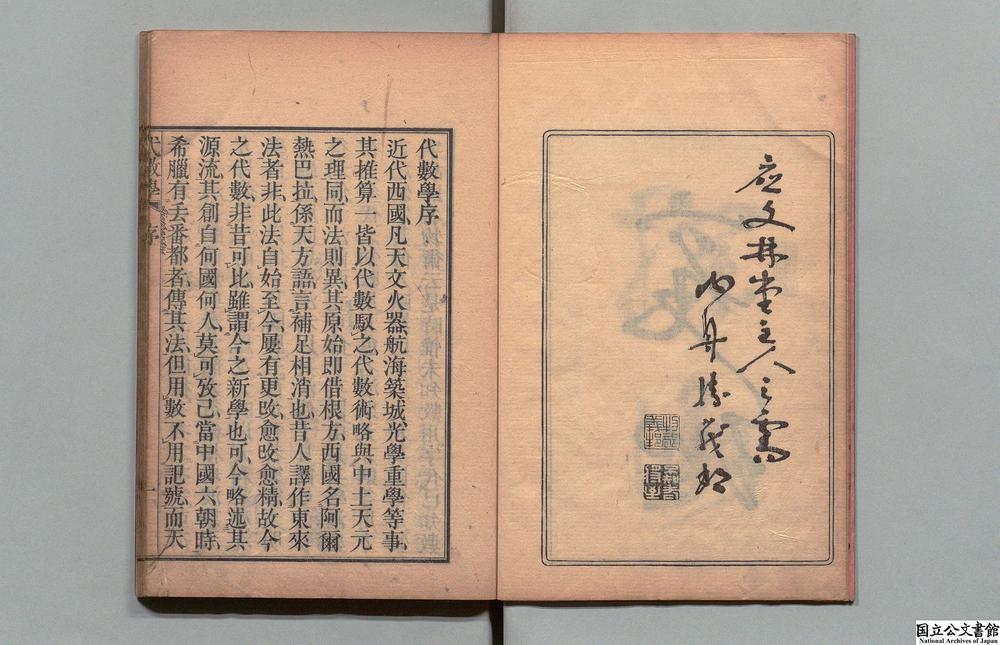 應文林堂主人之需
代數學序
近代西國凡天文火器航海築城光學重學等事
其推算一皆以代數馭之代數術略與中土天元
之理同而法則異其原始即借根方西國名阿爾
熱巴拉係天方語言補足相消也昔人譯作東來
法者非此法自始至今屢有更改愈改愈精故今
之代數非昔可比雖謂今之新學也可今略述其
源流其創自何國何人莫可攷已當中國六朝時
希臘有丢番都者傳其法但用數不用記號而天
代數學 序 一
国立公文書館
National Archives of Japan